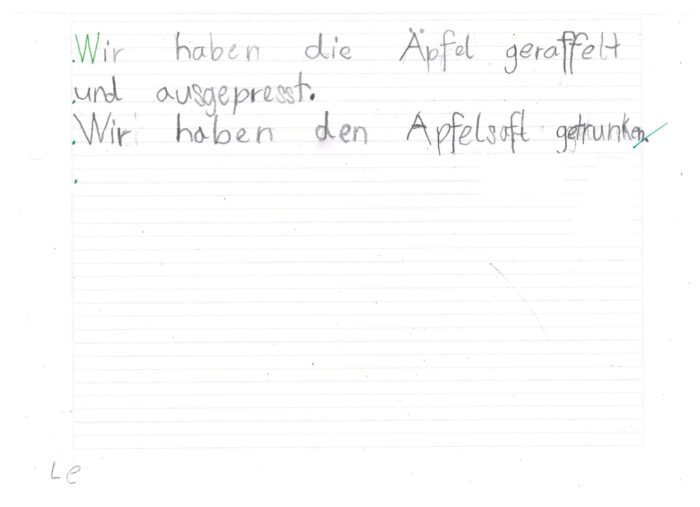 Wir haben die Äpfel geraffelt
und ausgepresst.
Wir haben den Apfelsaft getrunken.
Le